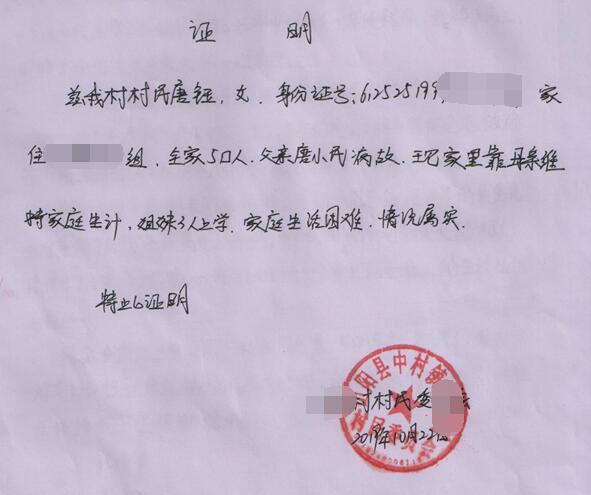 证 明
兹我村村民唐钰,女,身份证号:612525199 家
住 组,全家5口人.父亲唐小民病故.现家里靠母亲维
持家庭生计,姐妹3人上学.家庭生活困难.情况属实.
特此证明
阳县中村镇
村村民委
2019年10月22日